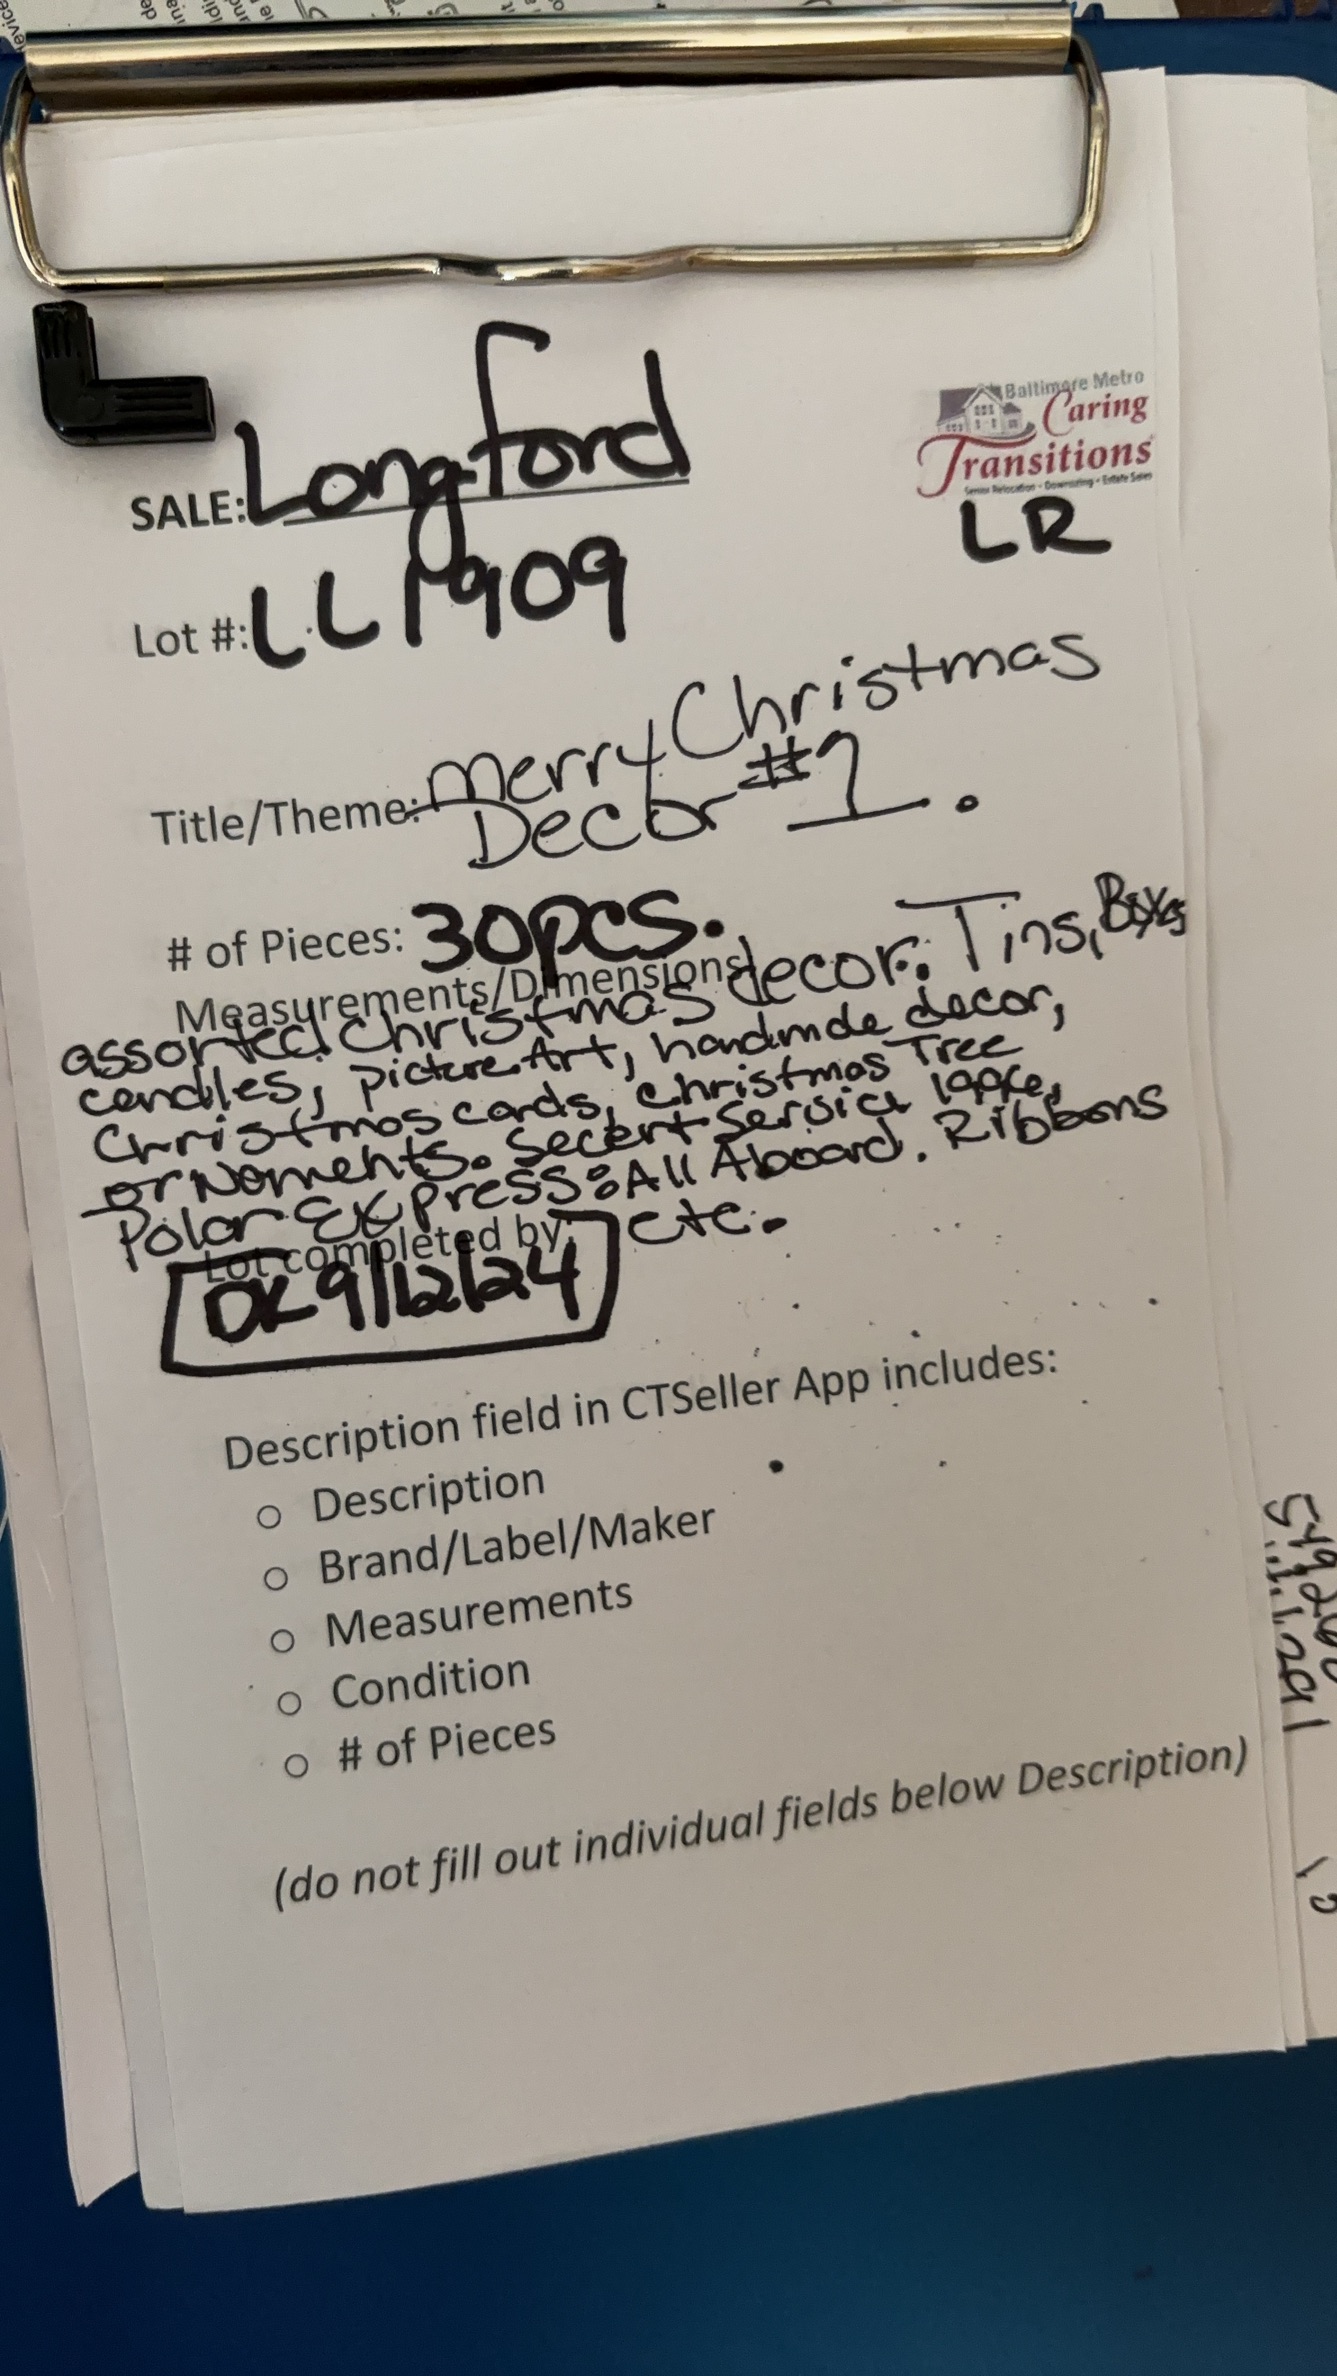 Baltimore Metro
Caring
Transitions
Senior Relocation • Downsizing • Estate Sales
LR
SALE: Longford
Lot #: LL1909
Title/Theme: Merry Christmas
Decor #1.
# of Pieces: 30pcs.
Measurements/Dimensions
assorted Christmas decor: Tins, Boxes
candles, picture Art, handmade decor,
Christmas cards, Christmas Tree
ornoments. Secert Service
Polar Express: All Aboard. Ribbons
etc.
Lot completed by:
9/12/24
Description field in CTSeller App includes:
○ Description
○ Brand/Label/Maker
○ Measurements
○ Condition
○ # of Pieces
(do not fill out individual fields below Description)